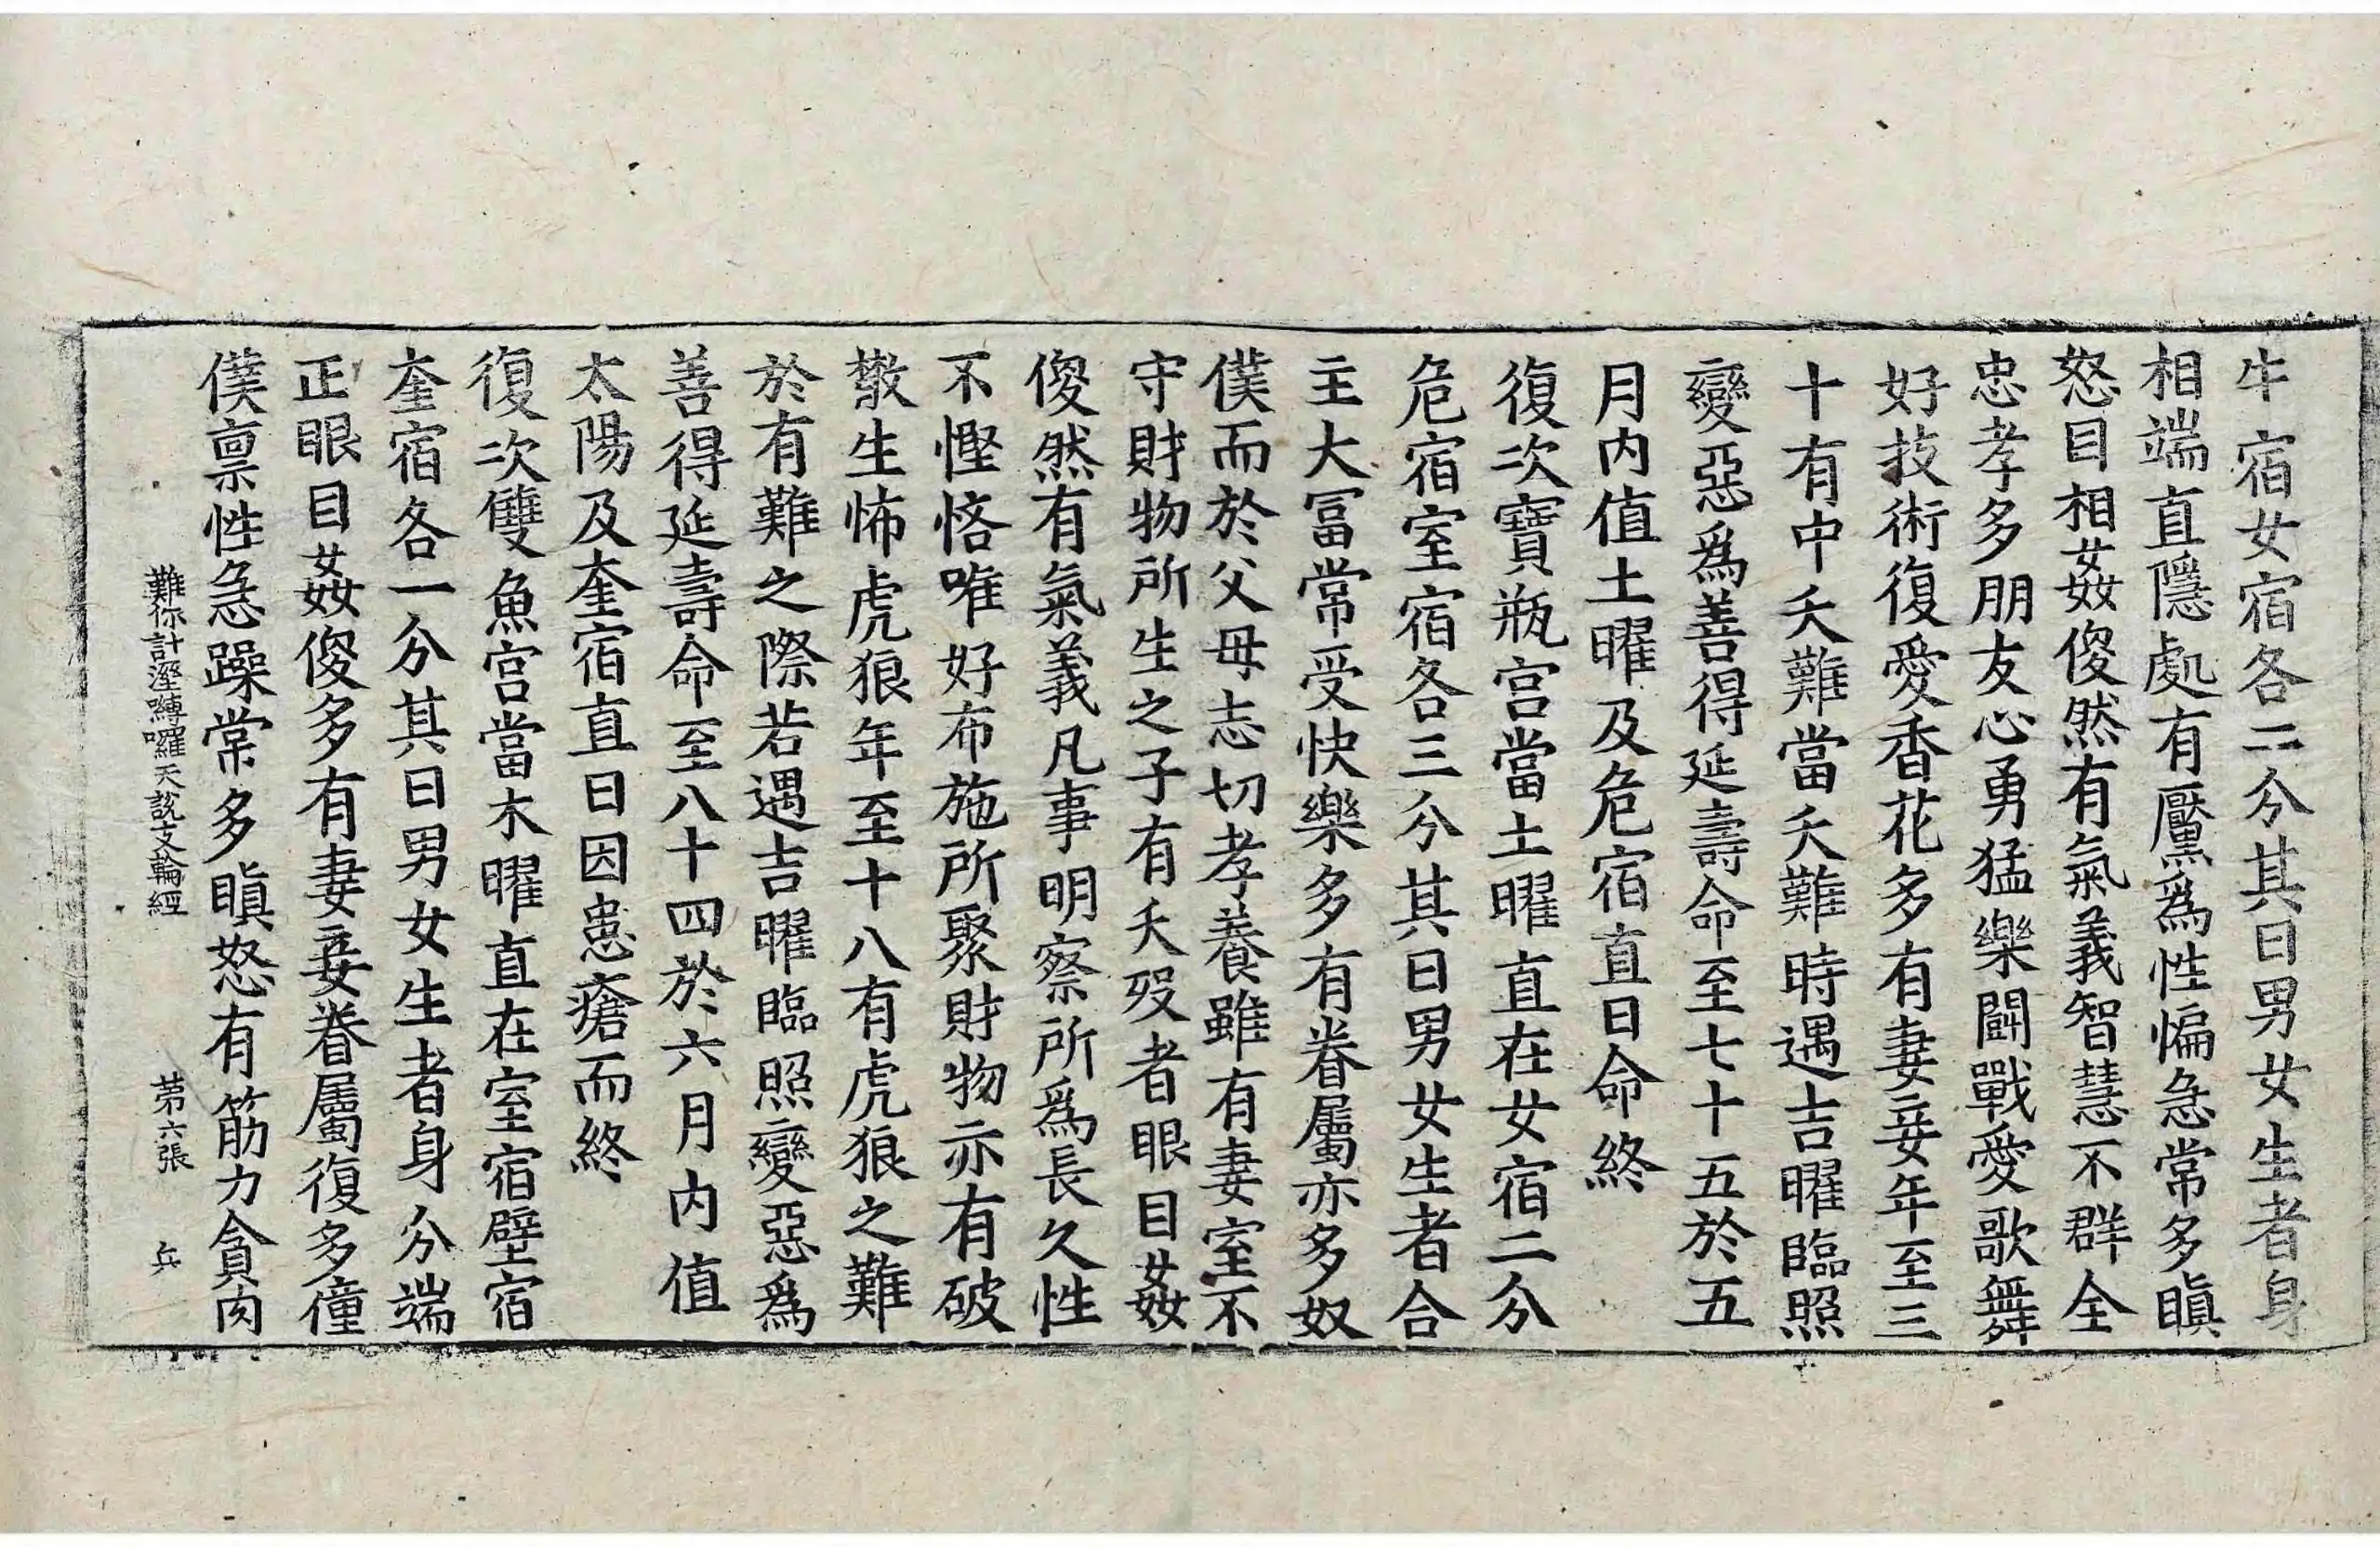 牛宿女宿各二分其日男女生者身
相端直隱處有黶爲性惼急常多瞋
怒目相姦傻然有氣義智慧不群全
忠孝多朋友心勇猛樂鬪戰愛歌舞
好技術復愛香花多有妻妾年至三
十有中夭難當夭難時遇吉曜臨照
變惡爲善得延壽命至七十五於五
月内值土曜及危宿直日命終
復次寶瓶宫當土曜直在女宿二分
危宿室宿各三分其日男女生者合
主大冨常受快樂多有眷屬亦多奴
僕而於父母志切孝養雖有妻室不
守財物所生之子有夭殁者眼目姦
傻然有氣義凡事明察所爲長久性
不慳悋唯好布施所聚財物亦有破
散生怖虎狼年至十八有虎狼之難
於有難之際若遇吉曜臨照變惡爲
善得延壽命至八十四於六月内值
太陽及奎宿直日因患瘡而終
復次雙魚宫當木曜直在室宿壁宿
奎宿各一分其日男女生者身分端
正眼目姦傻多有妻妾眷屬復多僮
僕禀性急躁常多瞋怒有筋力貪肉
難你計溼嚩囉天說支輪經 苐六張 兵